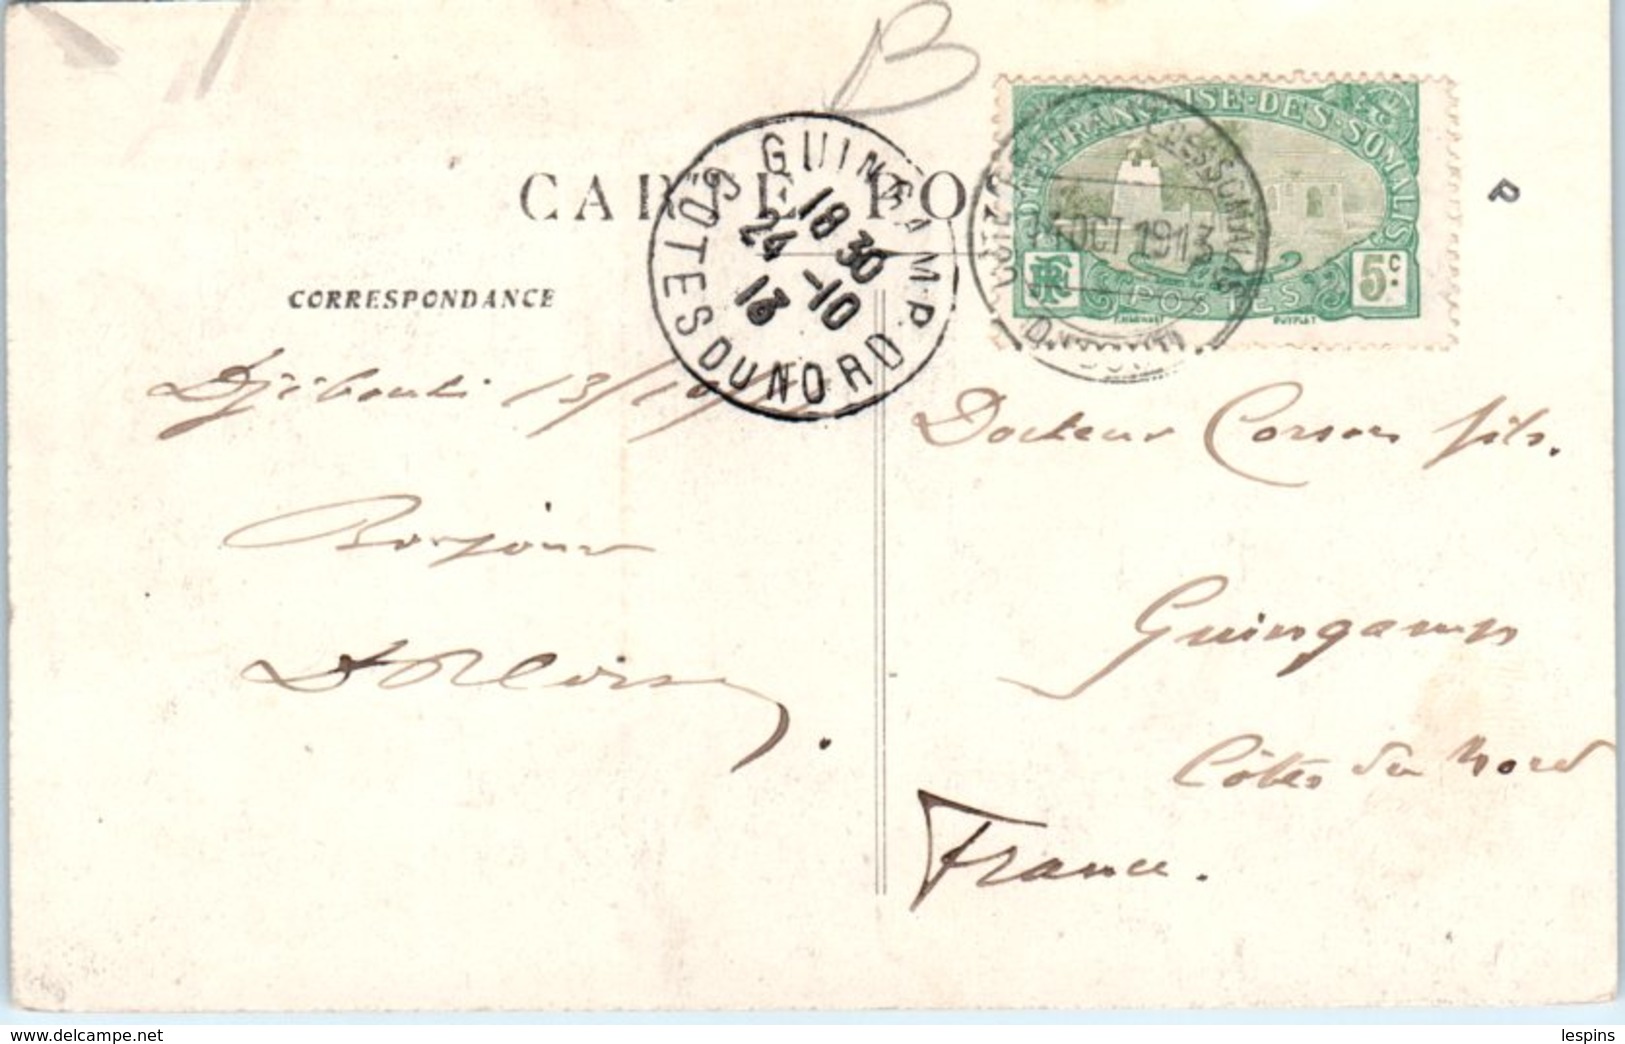 B
CARTE PO
CORRESPONDANCE
GUINGAMP.
CÔTES DU NORD
18 30
24 -10
13
CÔTE FRANÇAISE·DES·SOMALIS
POSTES
RF
5 c.
OCT 1913
P
Djibouti 13/10/
Bonjour
Docteur Corson fils.
Guingamp
Côtes du Nord
France.
www.delcampe.net
lespins